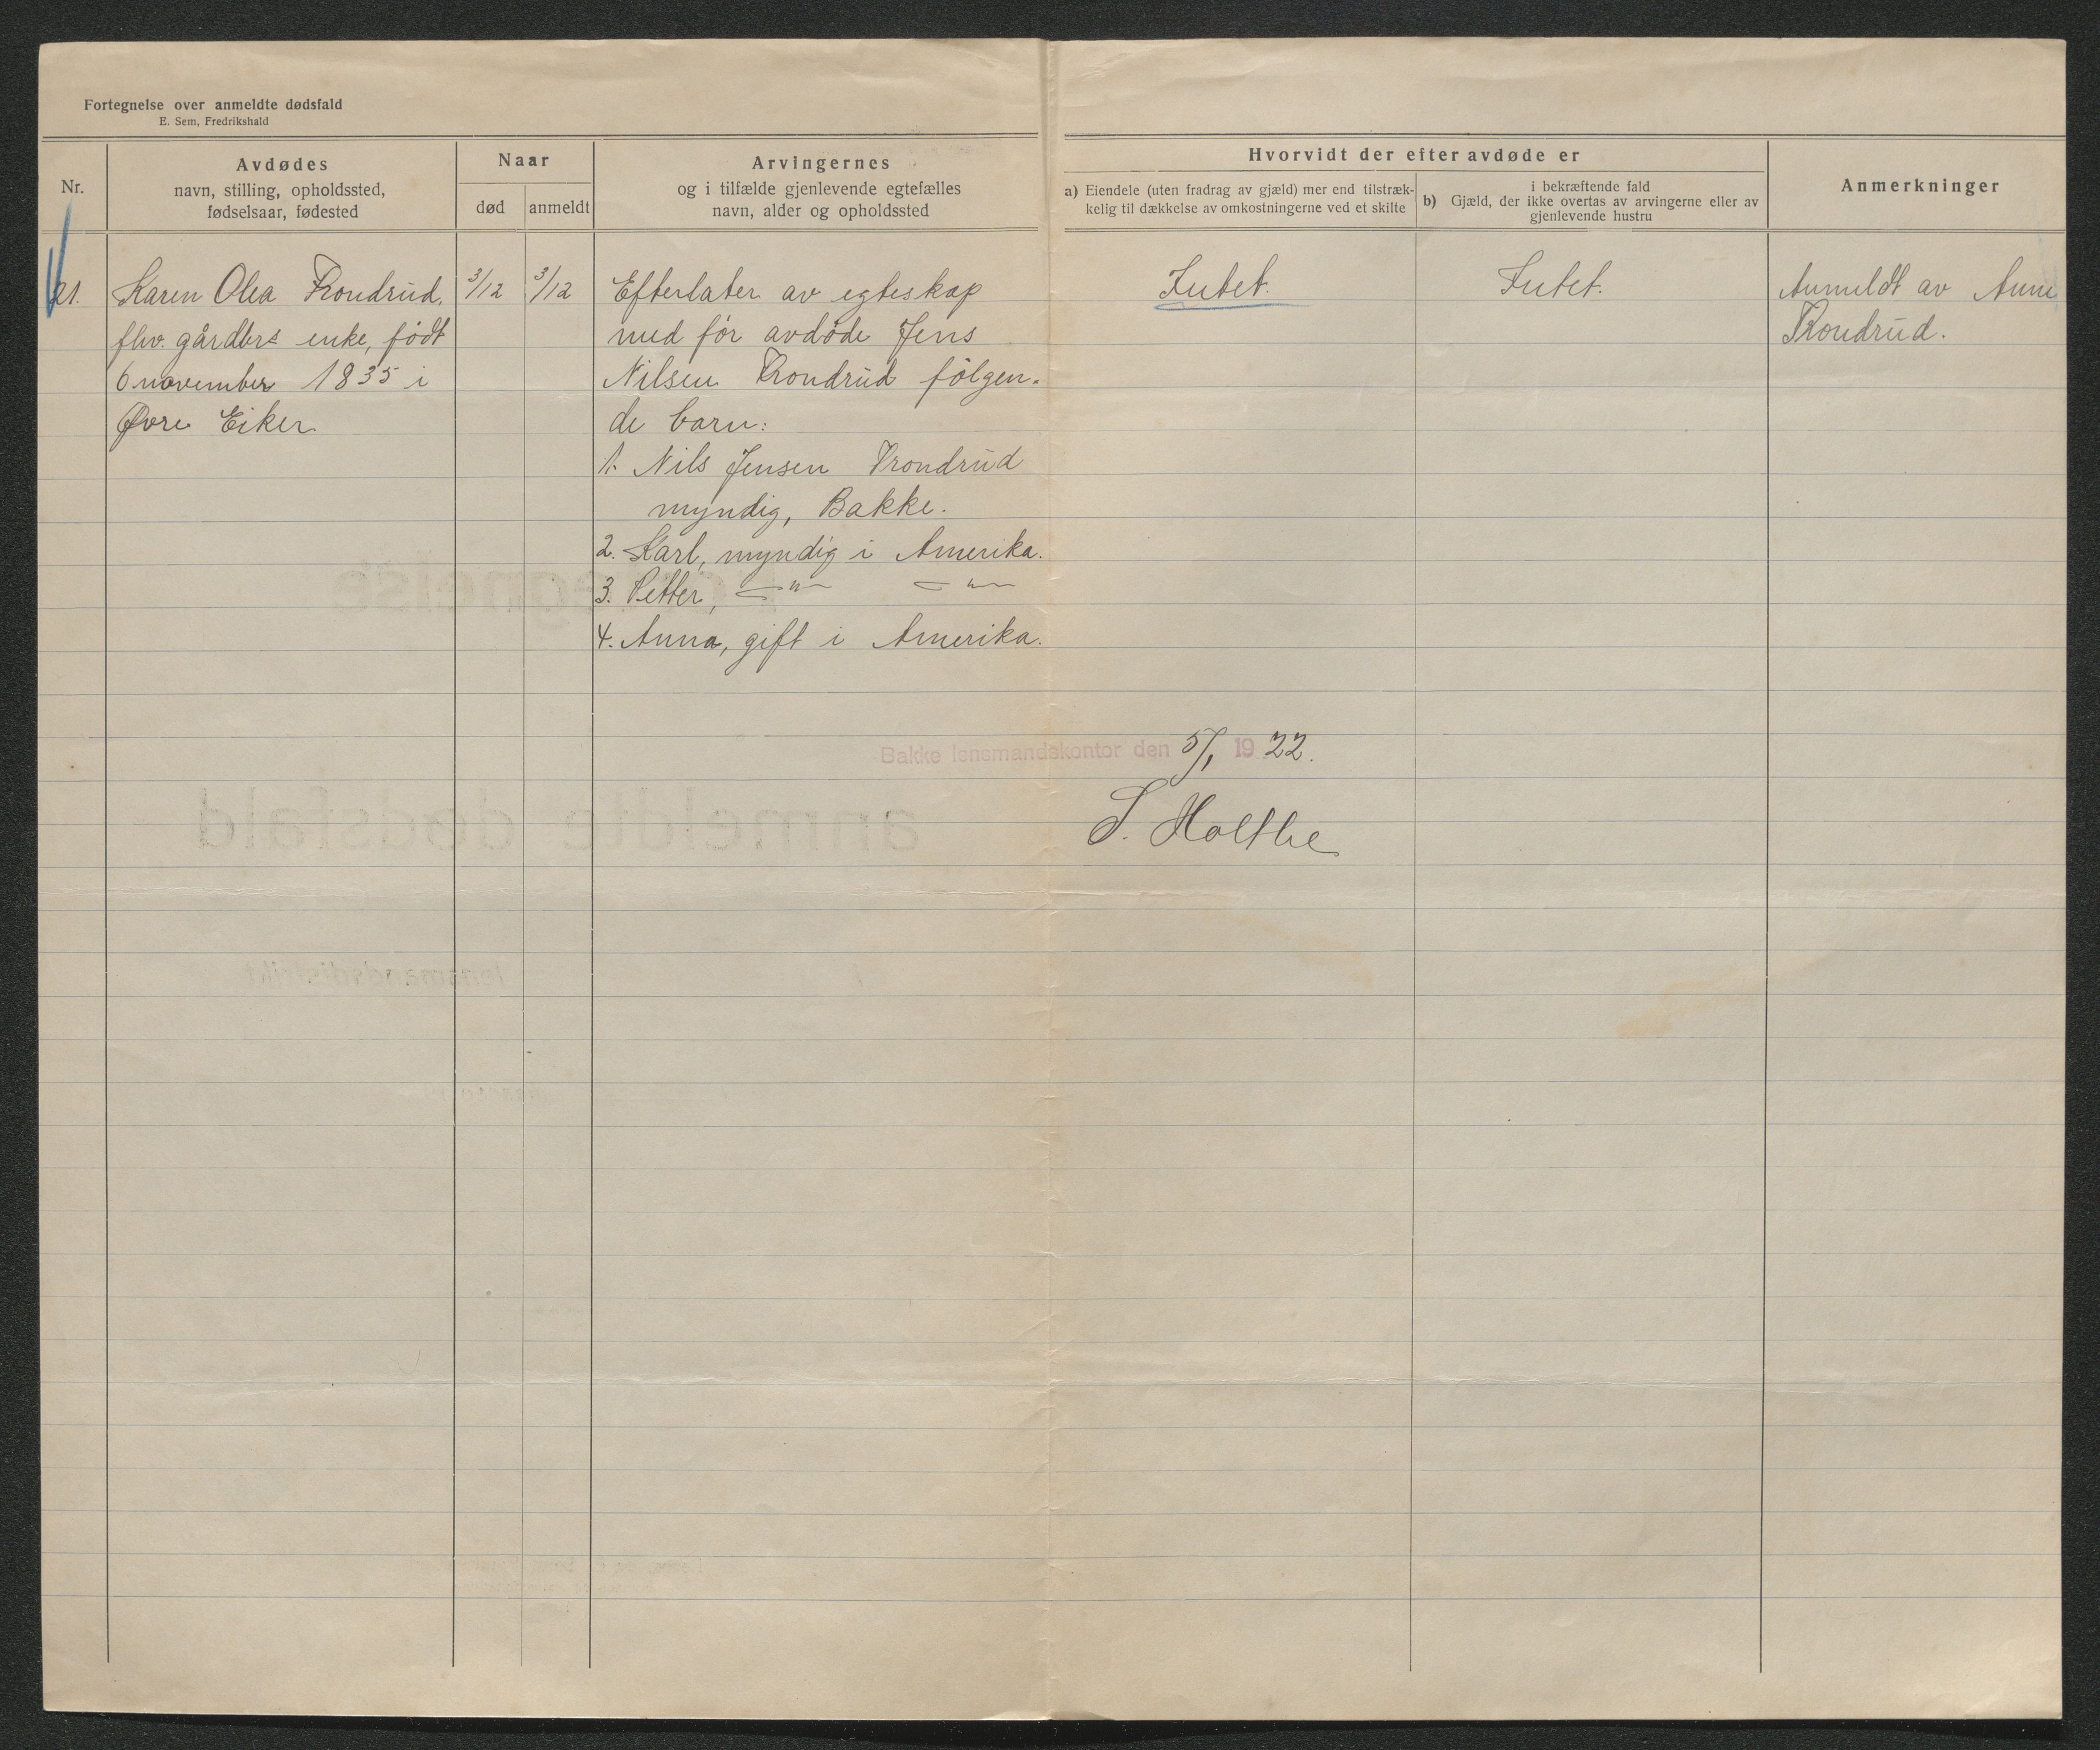 Fortegnelse over anmeldte dødsfald
E. Sem, Fredrikshald
Nr.
Avdødes
navn, stilling, opholdssted,
fødselsaar, fødested
Naar
død
anmeldt
Arvingernes
og i tilfælde gjenlevende egtefælles
navn, alder og opholdssted
Hvorvidt der efter avdøde er
a) Eiendele (uten fradrag av gjæld) mer end tilstræk-
kelig til dækkelse av omkostningerne ved et skilte
b) i bekræftende fald
Gjæld, der ikke overtas av arvingerne eller av
gjenlevende hustru
Anmerkninger
21.
Karen Olea Trondrud,
fhv. gårdbrs enke, født
6 november 1835 i
Øvre Eiker.
3/12
3/12
Efterlater av egteskap
med før avdøde Jens
Nilsen Trondrud følgen-
de barn:
1. Nils Jensen Trondrud
myndig, Bakke.
2. Karl, myndig i Amerika.
3. Petter, —"— —"—
4. Anna, gift i Amerika.
Intet.
Intet.
Anmeldt av Anne
Trondrud.
Bakke lensmandskontor den 5/1 1922.
S. Holthe
Fortegnelse
anmeldte dødsfald
lensmandsdistrikt